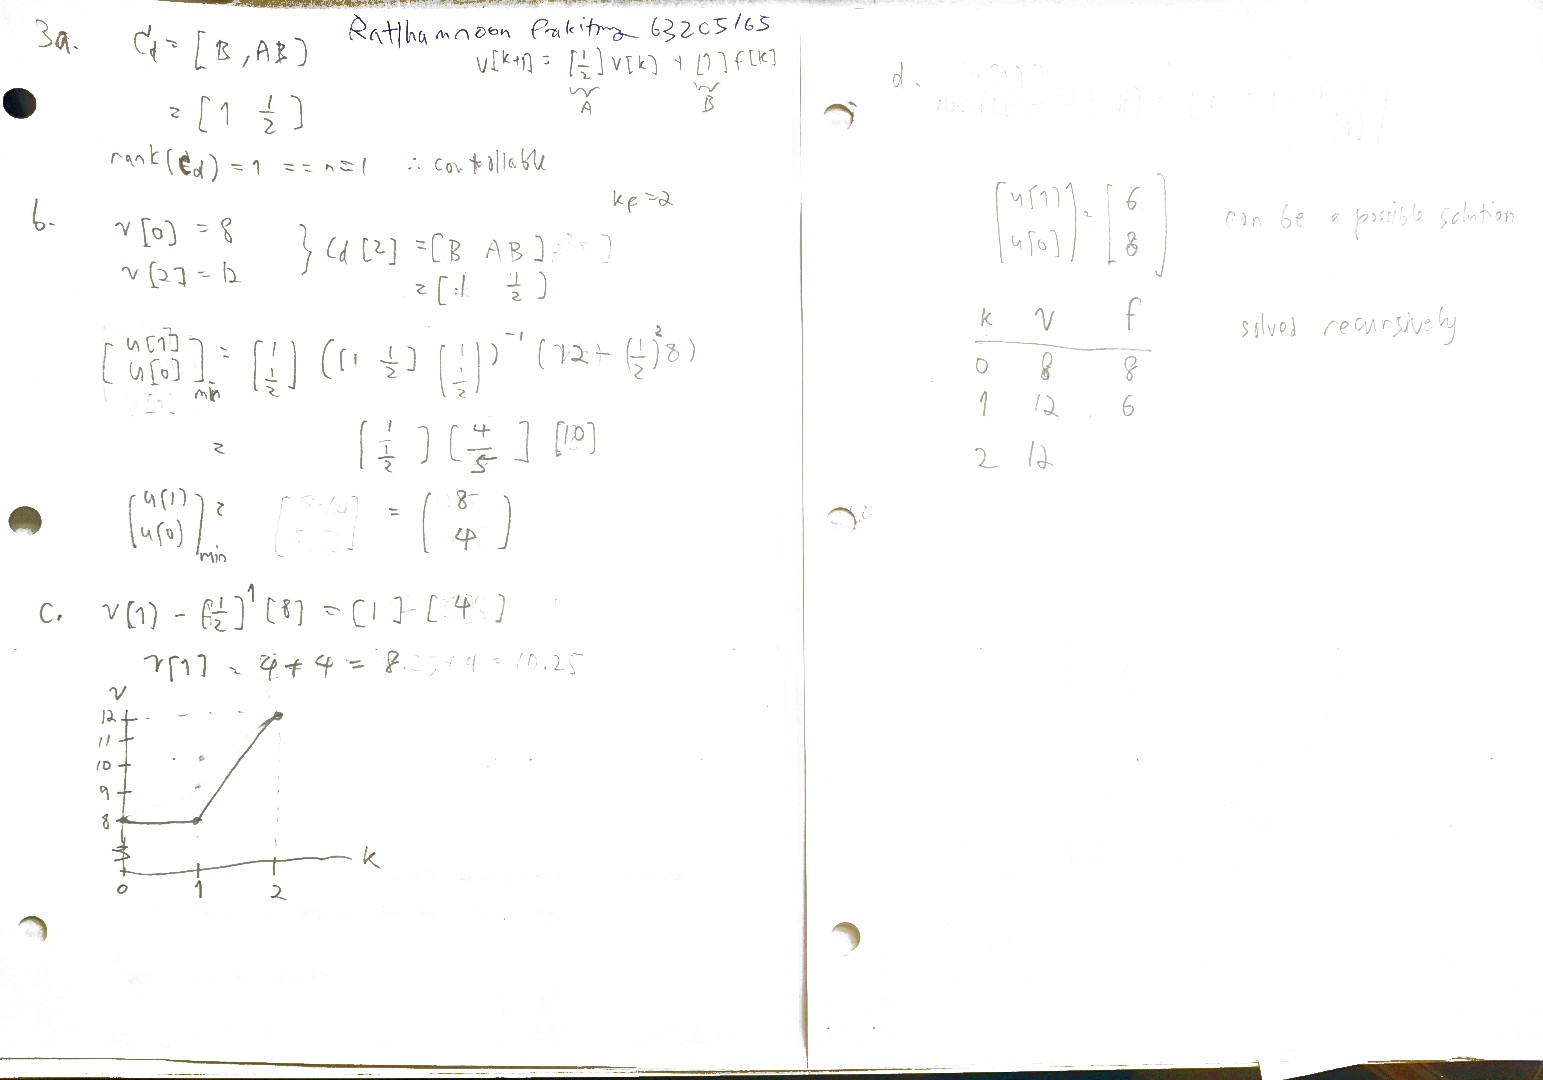 3a. C_d = [B, AB]
Ratthamnoon Prakitpong 63205165
v[k+1] = [1/2] v[k] + [1] f[k]
A B
= [1 1/2]
rank(C_d) = 1 == n = 1 ∴ controllable
b. v[0] = 8
v[2] = 12
k_f = 2
} C_d[2] = [B AB]
= [1 1/2]
[u[1] u[0]]_min = [1 1/2] ([1 1/2] [1 1/2])^-1 (12 - (1/2)^2 8)
= [1 1/2] [4/5] [10]
[u(1) u(0)]_min = = [8 4]
c. v[1] - [1/2]^1 [8] = [1] [4]
v[1] = 4 + 4 = 8
v
12
11
10
9
8
0 1 2 k
d.
[u[1] u[0]] = [6 8] can be a possible solution
k v f solved recursively
0 8 8
1 12 6
2 12